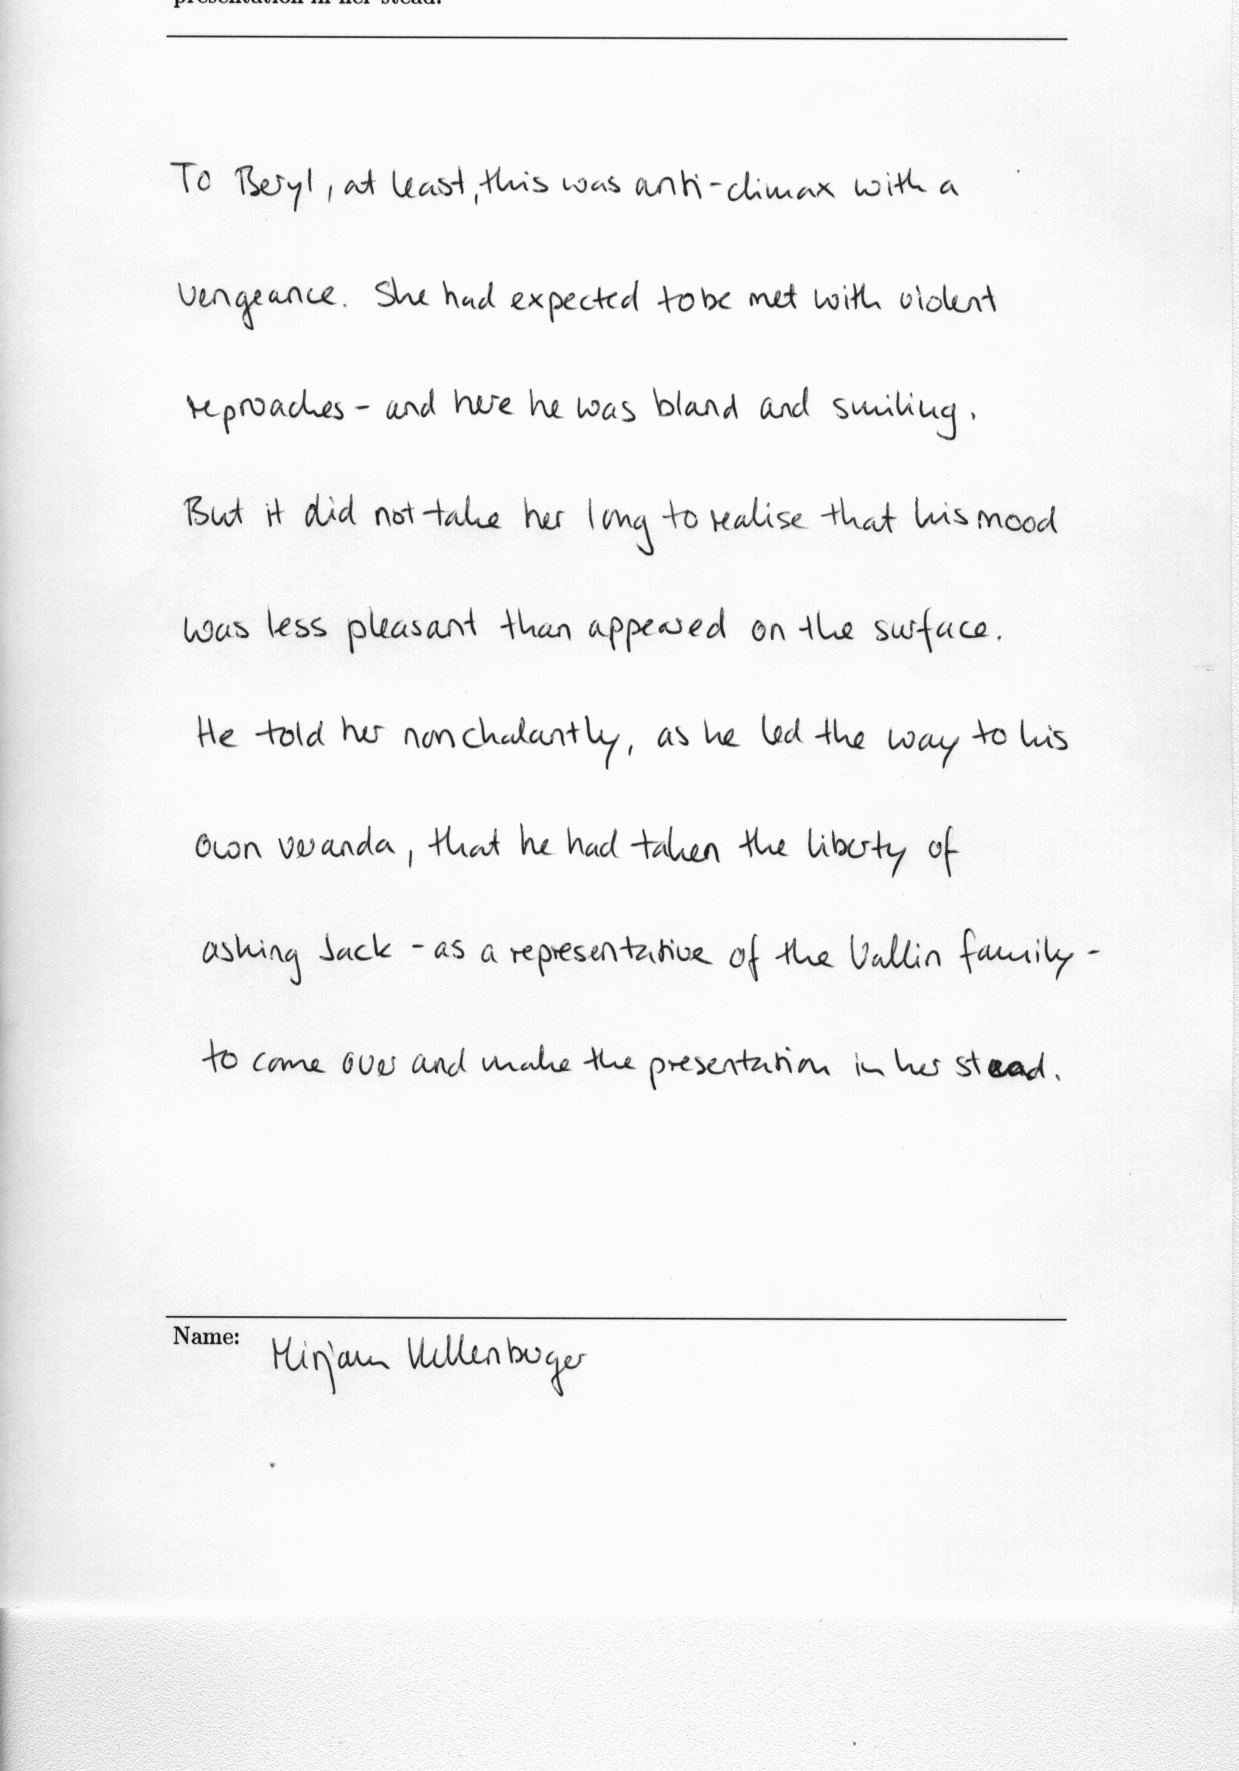 presentation in her stead.
To Beryl, at least, this was anti-climax with a
vengeance. She had expected to be met with violent
reproaches - and here he was bland and smiling.
But it did not take her long to realise that his mood
was less pleasant than appeared on the surface.
He told her nonchalantly, as he led the way to his
own veranda, that he had taken the liberty of
asking Jack - as a representative of the Vallin family -
to come over and make the presentation in her stead.
Name: Mirjam